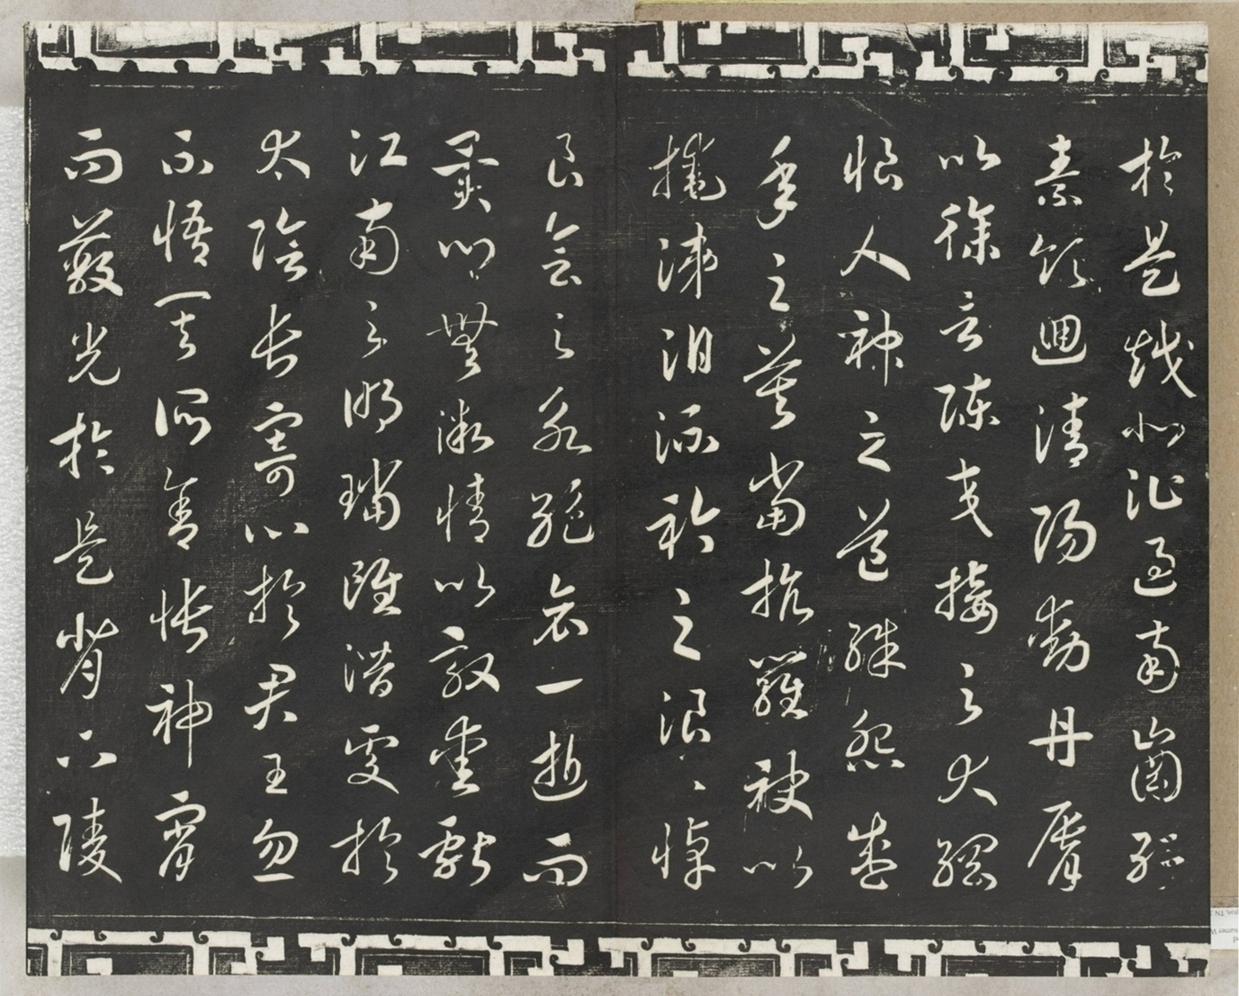 於是越北沚過南岡紆
素領迴清陽動丹脣
以徐言陳交接之大綱
恨人神之道殊怨盛
年之莫當抗羅袂以
掩涕泪流衿之浪浪悼
良會之永絕哀一逝而
異鄉無微情以效愛獻
江南之明璫雖潛處於
太陰長寄心於君王忽
不悟其所舍悵神宵
而蔽光於是背下陵